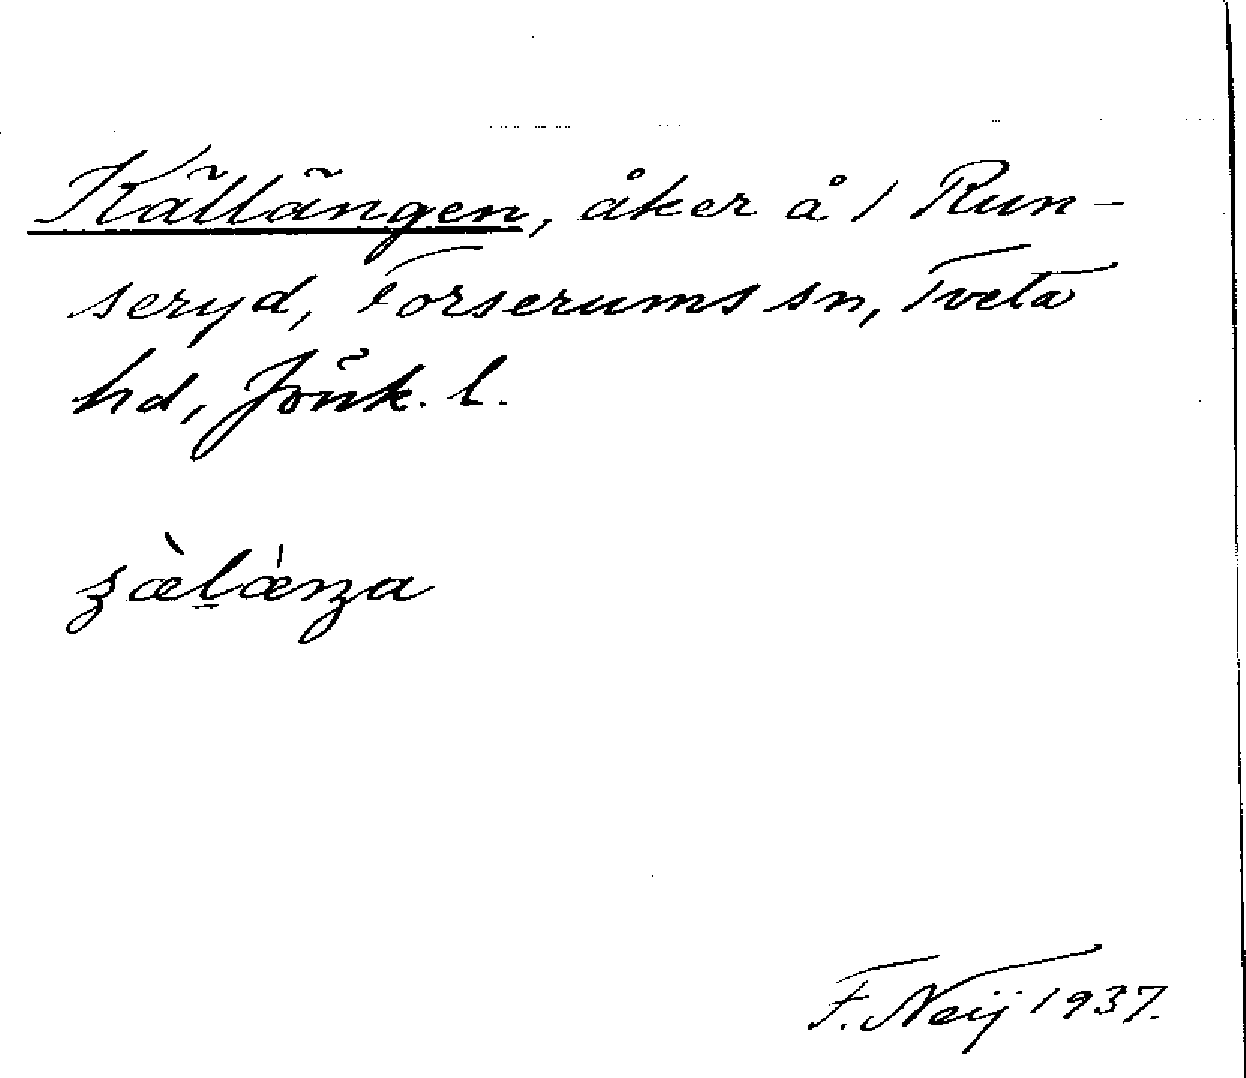 Källängen, åker å 1 Run-
seryd, Forserums sn, Tveta
hd, Jönk. l.
F. Neij 1937.